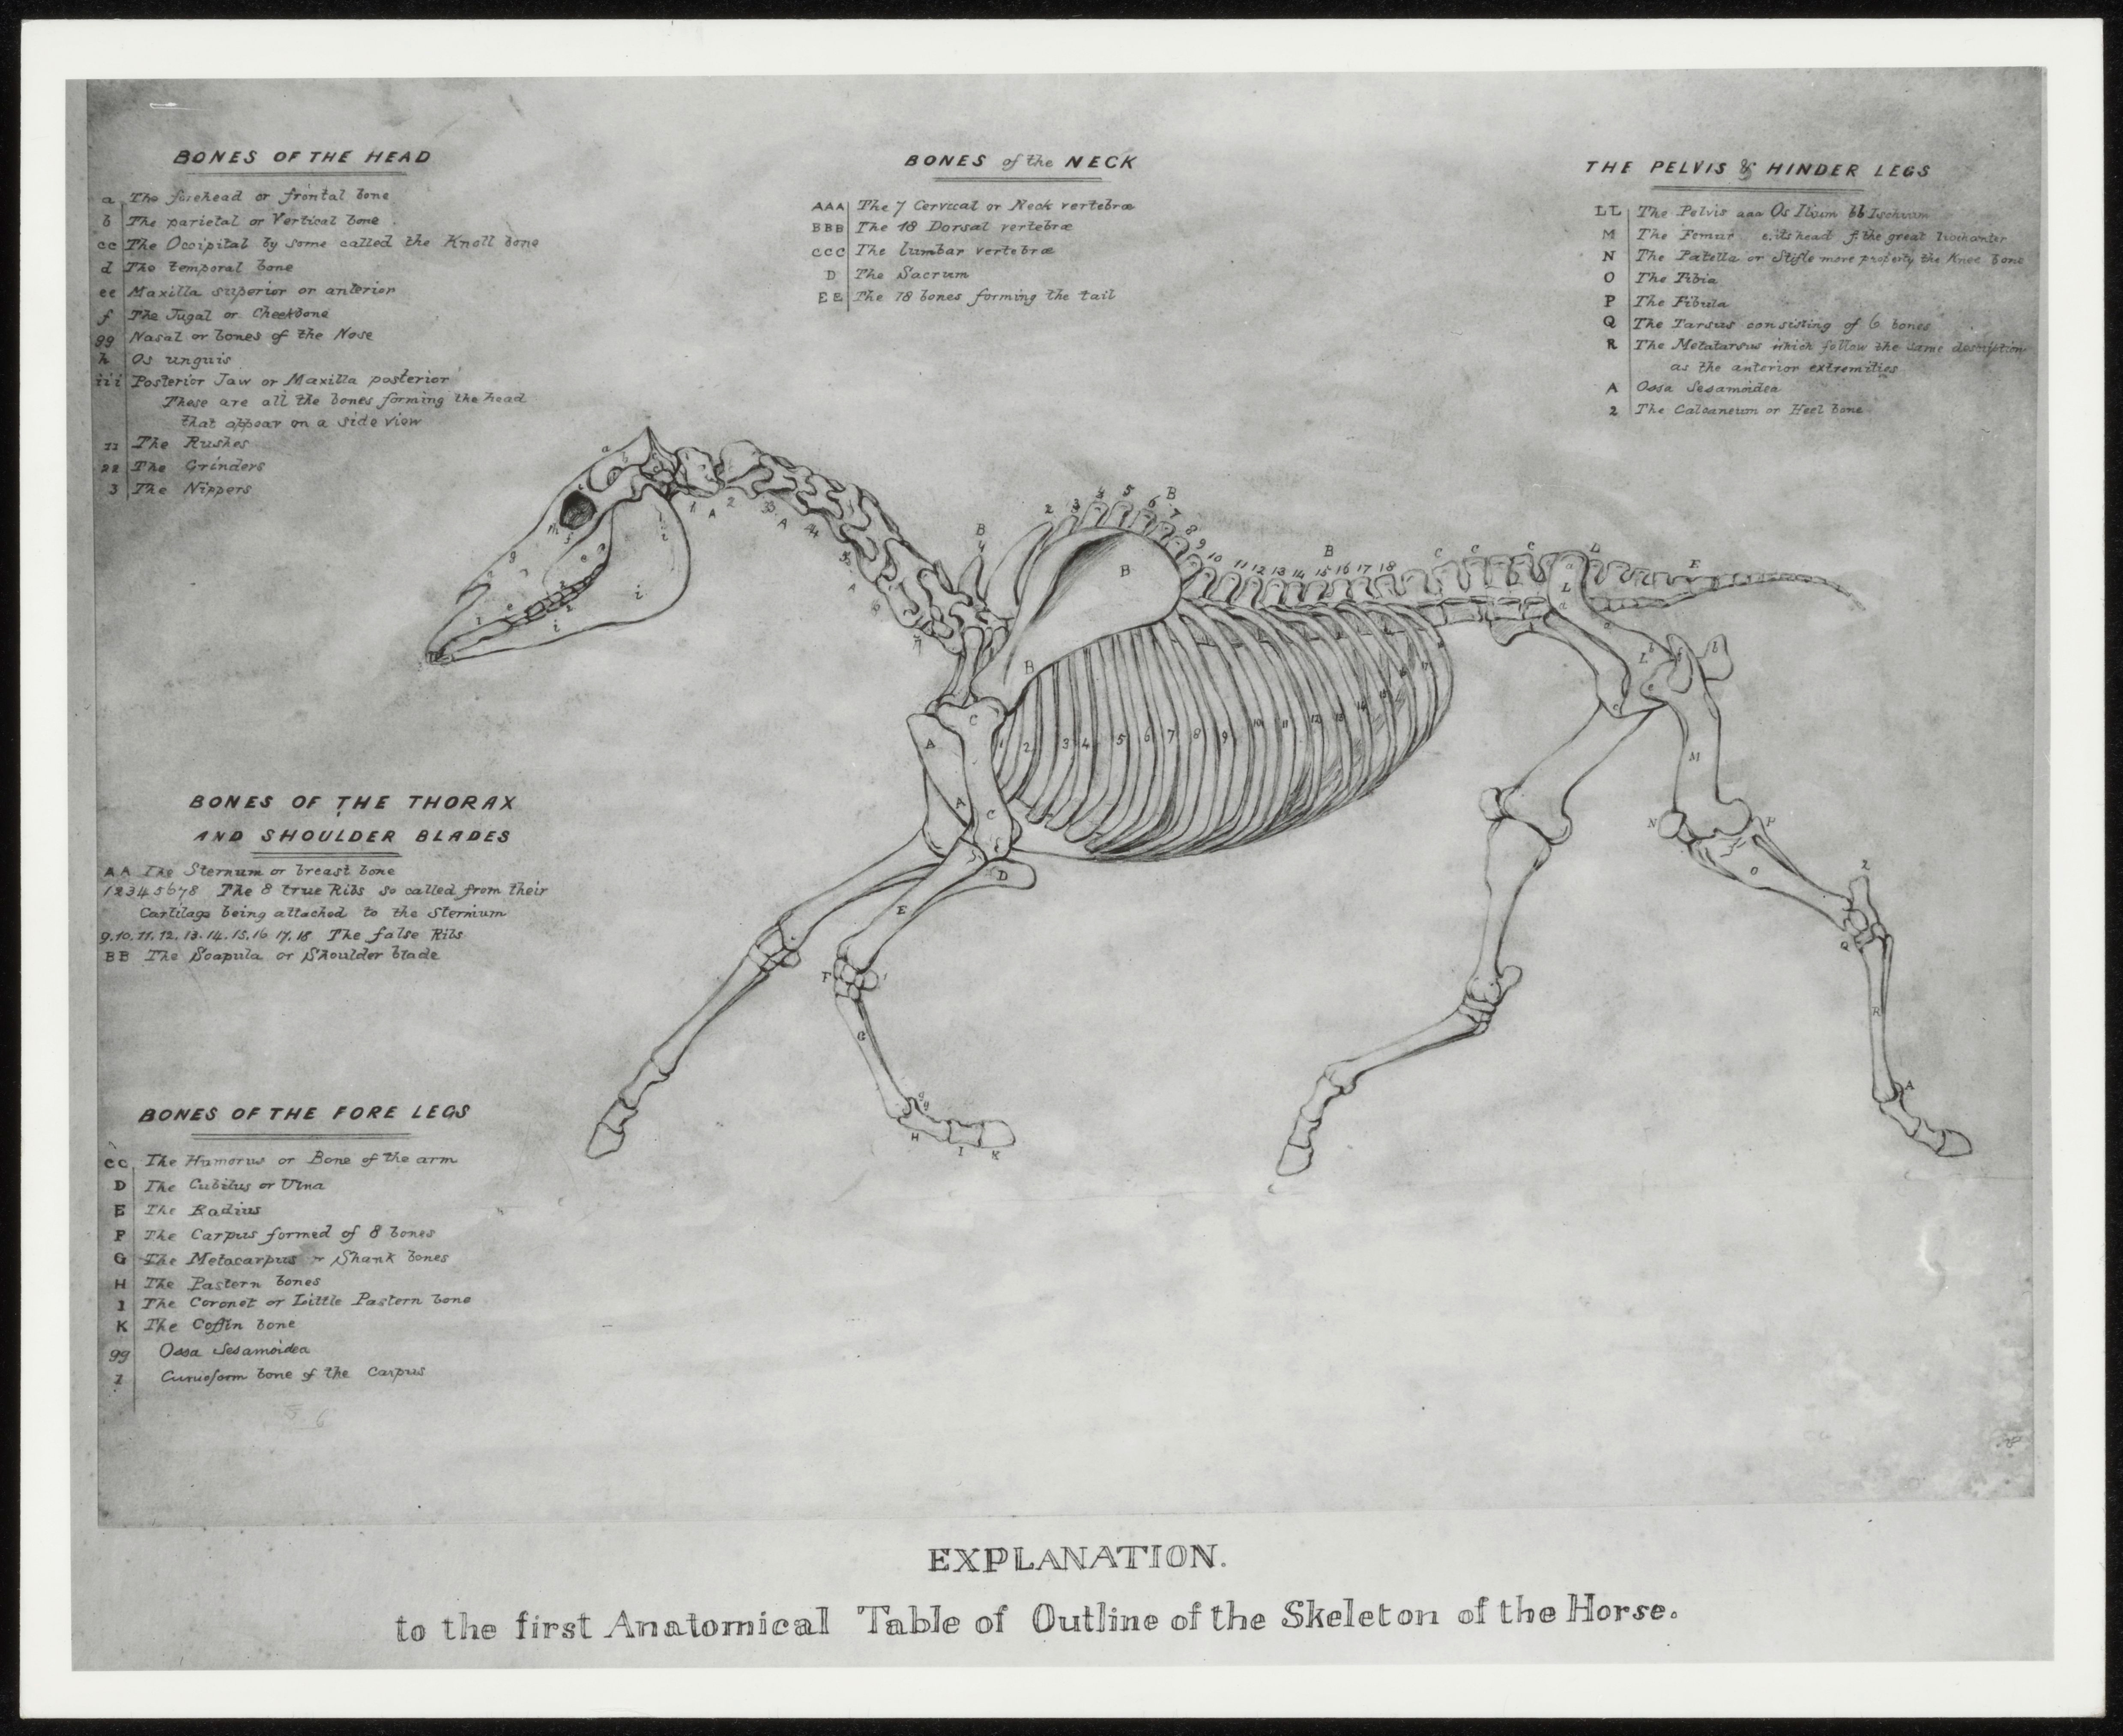 BONES OF THE HEAD
a The forehead or frontal bone
b The parietal or Vertical bone
cc The Occipital by some called the Knoll bone
d The temporal bone
ee Maxilla superior or anterior
f The Jugal or Cheekbone
gg Nasal or bones of the Nose
h Os unguis
iii Posterior Jaw or Maxilla posterior
These are all the bones forming the head
that appear on a side view
11 The Rushes
22 The Grinders
3 The Nippers
BONES of the NECK
AAA The 7 Cervical or Neck vertebræ
BBB The 18 Dorsal vertebræ
CCC The lumbar vertebræ
D The Sacrum
EE The 18 bones forming the tail
THE PELVIS & HINDER LEGS
LL The Pelvis aaa Os Ilium bb Ischium
M The Femur e. its head f. the great trochanter
N The Patella or Stifle more properly the Knee bone
O The Tibia
P The Fibula
Q The Tarsus consisting of 6 bones
R The Metatarsus which follow the same description
as the anterior extremities
A Ossa Sesamoidea
2 The Calcaneum or Heel bone
BONES OF THE THORAX
AND SHOULDER BLADES
AA The Sternum or breast bone
12345678 The 8 true Ribs so called from their
Cartilage being attached to the Sternium
9.10.11.12.13.14.15.16 17.18 The false Ribs
BB The Scapula or Shoulder blade
BONES OF THE FORE LEGS
CC The Humerus or Bone of the arm
D The Cubitus or Ulna
E The Radius
F The Carpus formed of 8 bones
G The Metacarpus or Shank bones
H The Pastern bones
I The Coronet or Little Pastern bone
K The Coffin bone
gg Ossa Sesamoidea
1 Cuneiform bone of the Carpus
EXPLANATION.
to the first Anatomical Table of Outline of the Skeleton of the Horse.